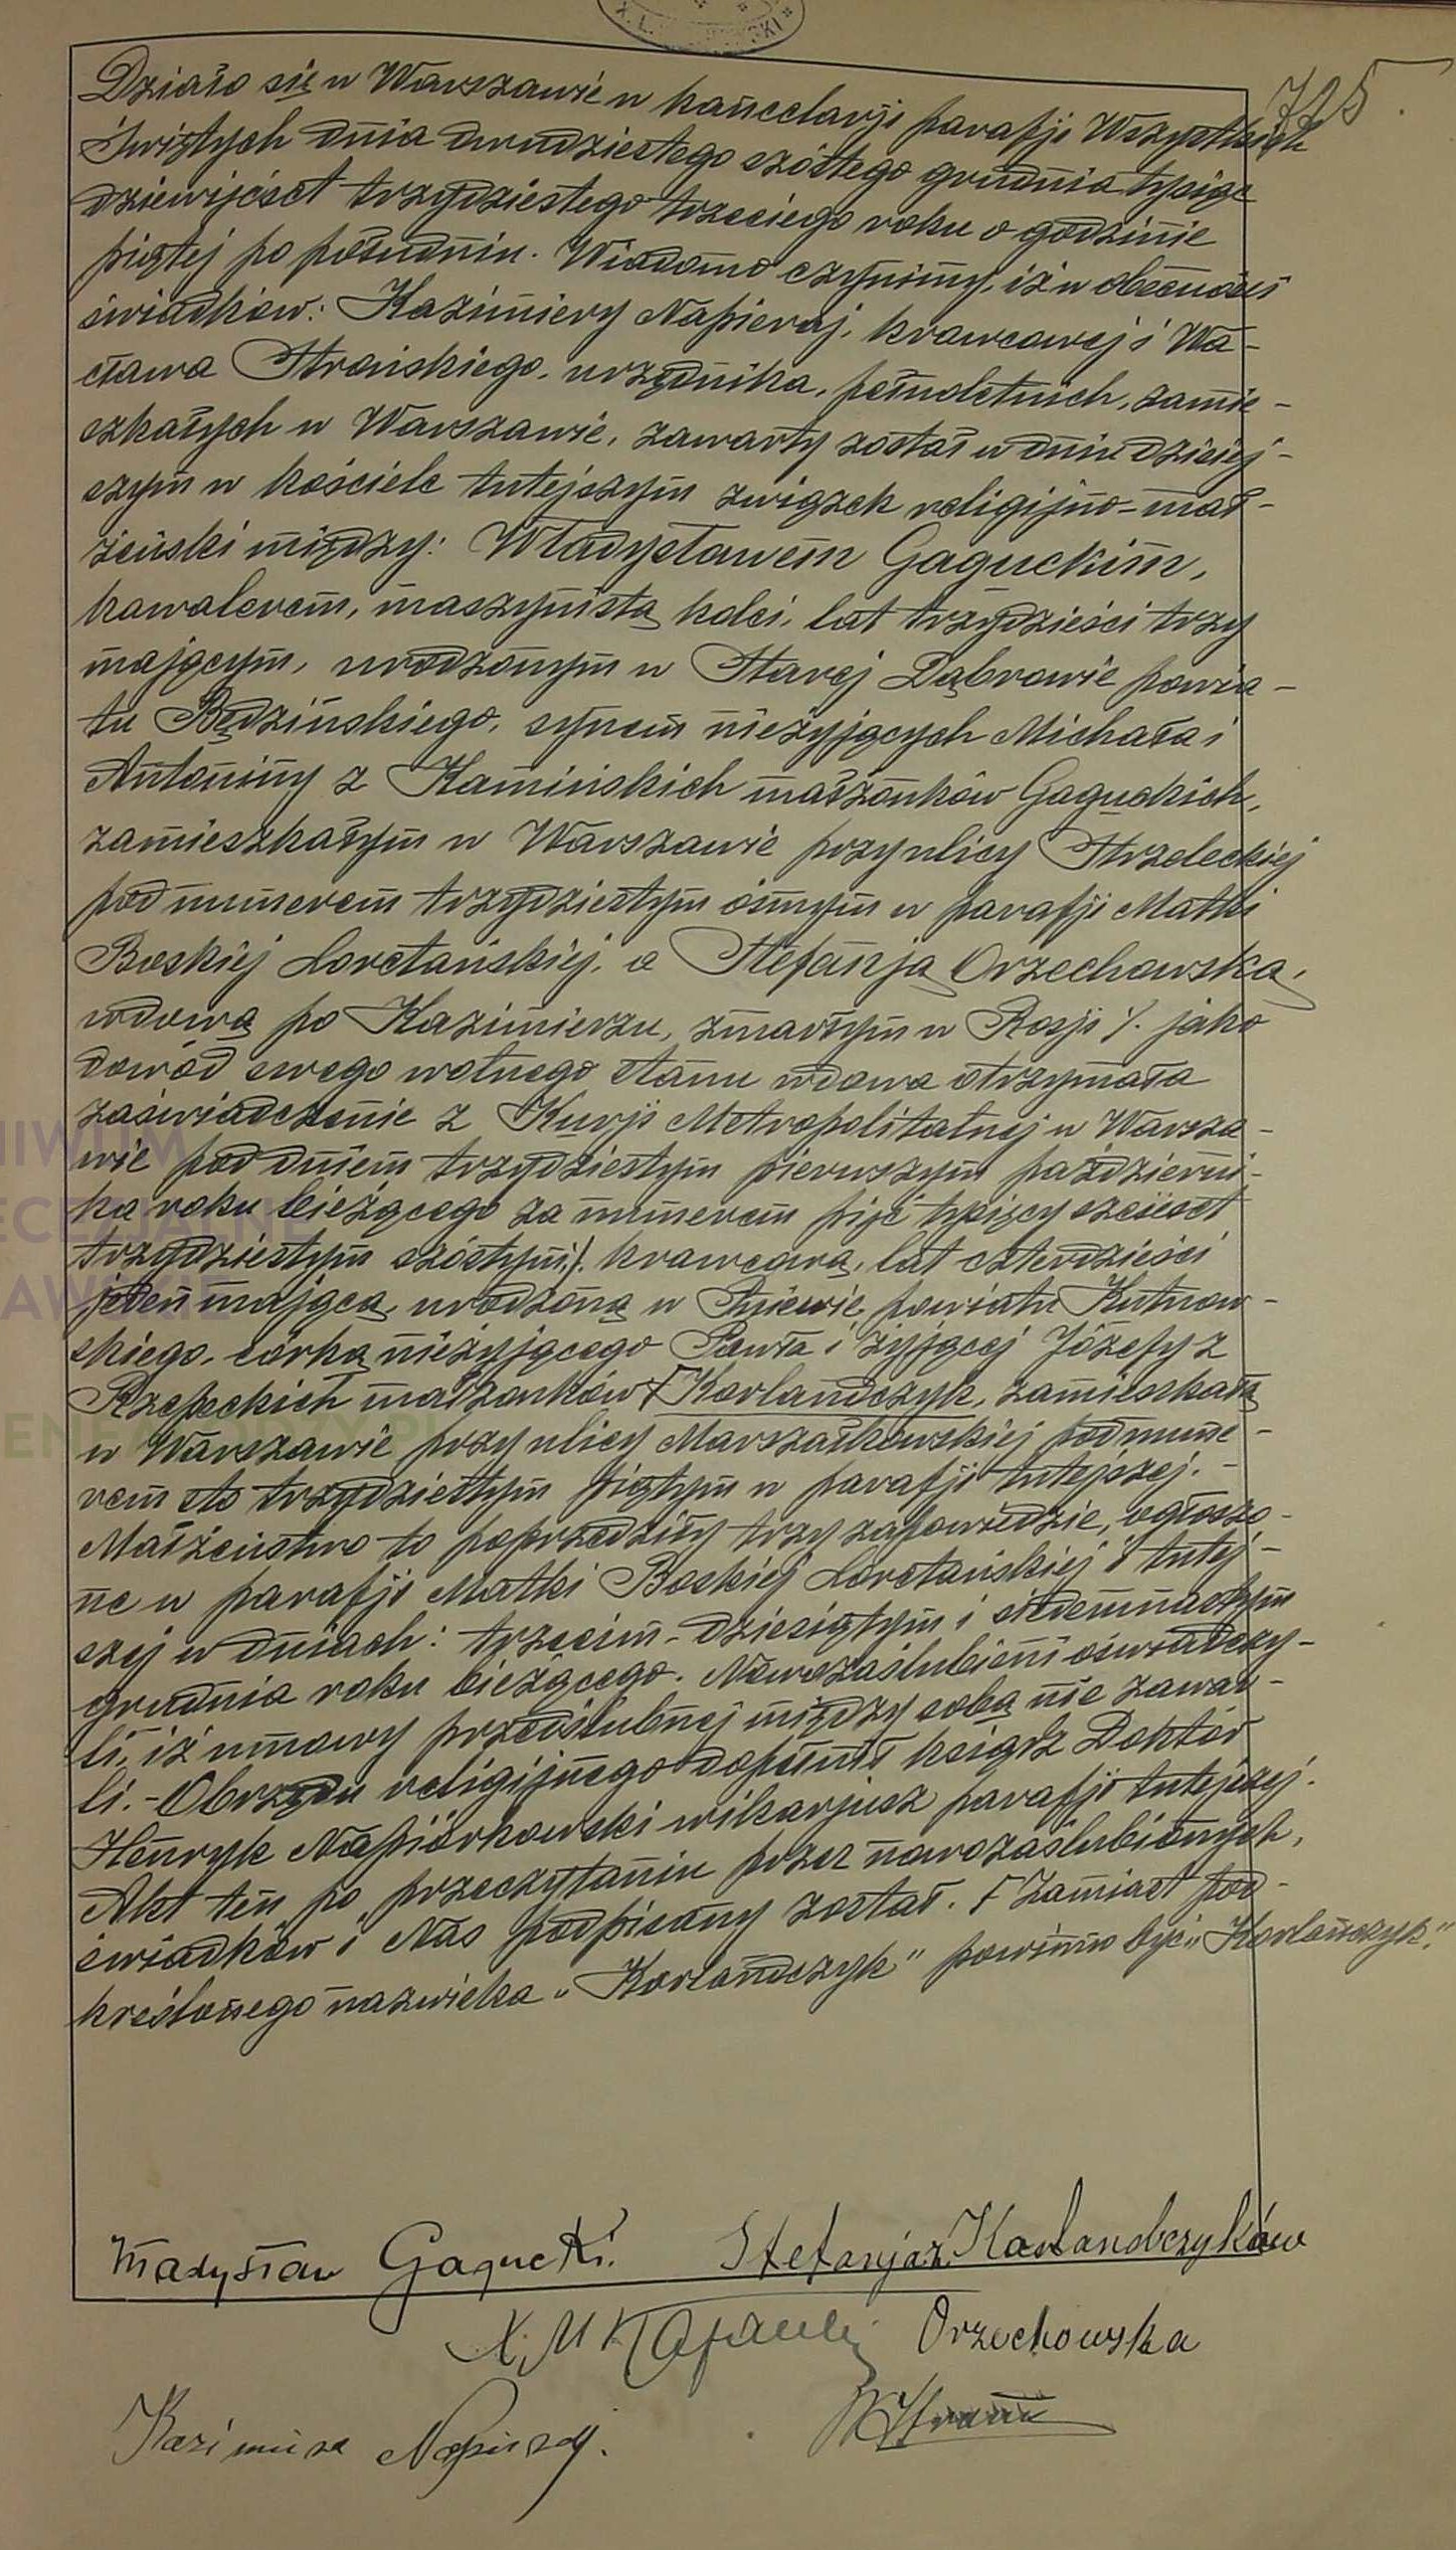 725.
Działo się w Warszawie w kancelarji parafji Wszystkich
Świętych dnia dwudziestego szóstego grudnia tysiąc
dziewięćset trzydziestego trzeciego roku o godzinie
piątej po południu. Wiadomo czynimy, iż w obecności
świadków: Kazimiery Napieraj, krawcowej i Wa-
cława Strońskiego, urzędnika, pełnoletnich, zamie-
szkałych w Warszawie, zawarty został w dniu dzisiej-
szym w kościele tutejszym związek religijno-mał-
żeński między: Władysławem Gaguckim,
kawalerem, maszynistą kolei, lat trzydzieści trzy
mającym, urodzonym w Starej Dąbrowie powia-
tu Będzińskiego, synem nieżyjących Michała i
Antoniny z Kamińskich małżonków Gaguckich,
zamieszkałym w Warszawie przy ulicy Strzeleckiej
pod numerem trzydziestym ósmym w parafji Matki
Boskiej Loretańskiej, a Stefanją Orzechowską,
wdową po Kazimierzu, zmarłym w Rosji /. jako
dowód swego wolnego stanu wdowa otrzymała
zaświadczenie z Kurji Metropolitalnej w Warsza-
wie pod dniem trzydziestym pierwszym październi-
ka roku bieżącego za numerem pięć tysięcy sześćset
trzydziestym szóstym /. krawcową, lat czterdzieści
jeden mającą, urodzoną w Śniewie, powiatu Kutnow-
skiego, córką nieżyjącego Pawła i żyjącej Józefy z
Rzepeckich małżonków Γ Korlandczyk, zamieszkałą
w Warszawie przy ulicy Marszałkowskiej pod nume-
rem sto trzydziestym piątym w parafji tutejszej. -
Małżeństwo to poprzedziły trzy zapowiedzie, ogłoszo-
ne w parafji Matki Boskiej Loretańskiej i tutej-
szej w dniach: trzecim, dziesiątym i siedemnastym
grudnia roku bieżącego. Nowozaślubieni oświadczy-
li, iż umowy przedślubnej między sobą nie zawar-
li. - Obrzędu religijnego dopełnił ksiądz Doktór
Henryk Napiórkowski wikarjusz parafji tutejszej.
Akt ten po przeczytaniu przez nowozaślubionych,
świadków i Nas podpisany został. Γ Zamiast pod-
kreślonego nazwiska „Korlandczyk" powinno być „Korlańczyk."
Władysław Gagucki. Stefanja z Karlandczyków
Orzechowska
Kazimiera Napieraj.